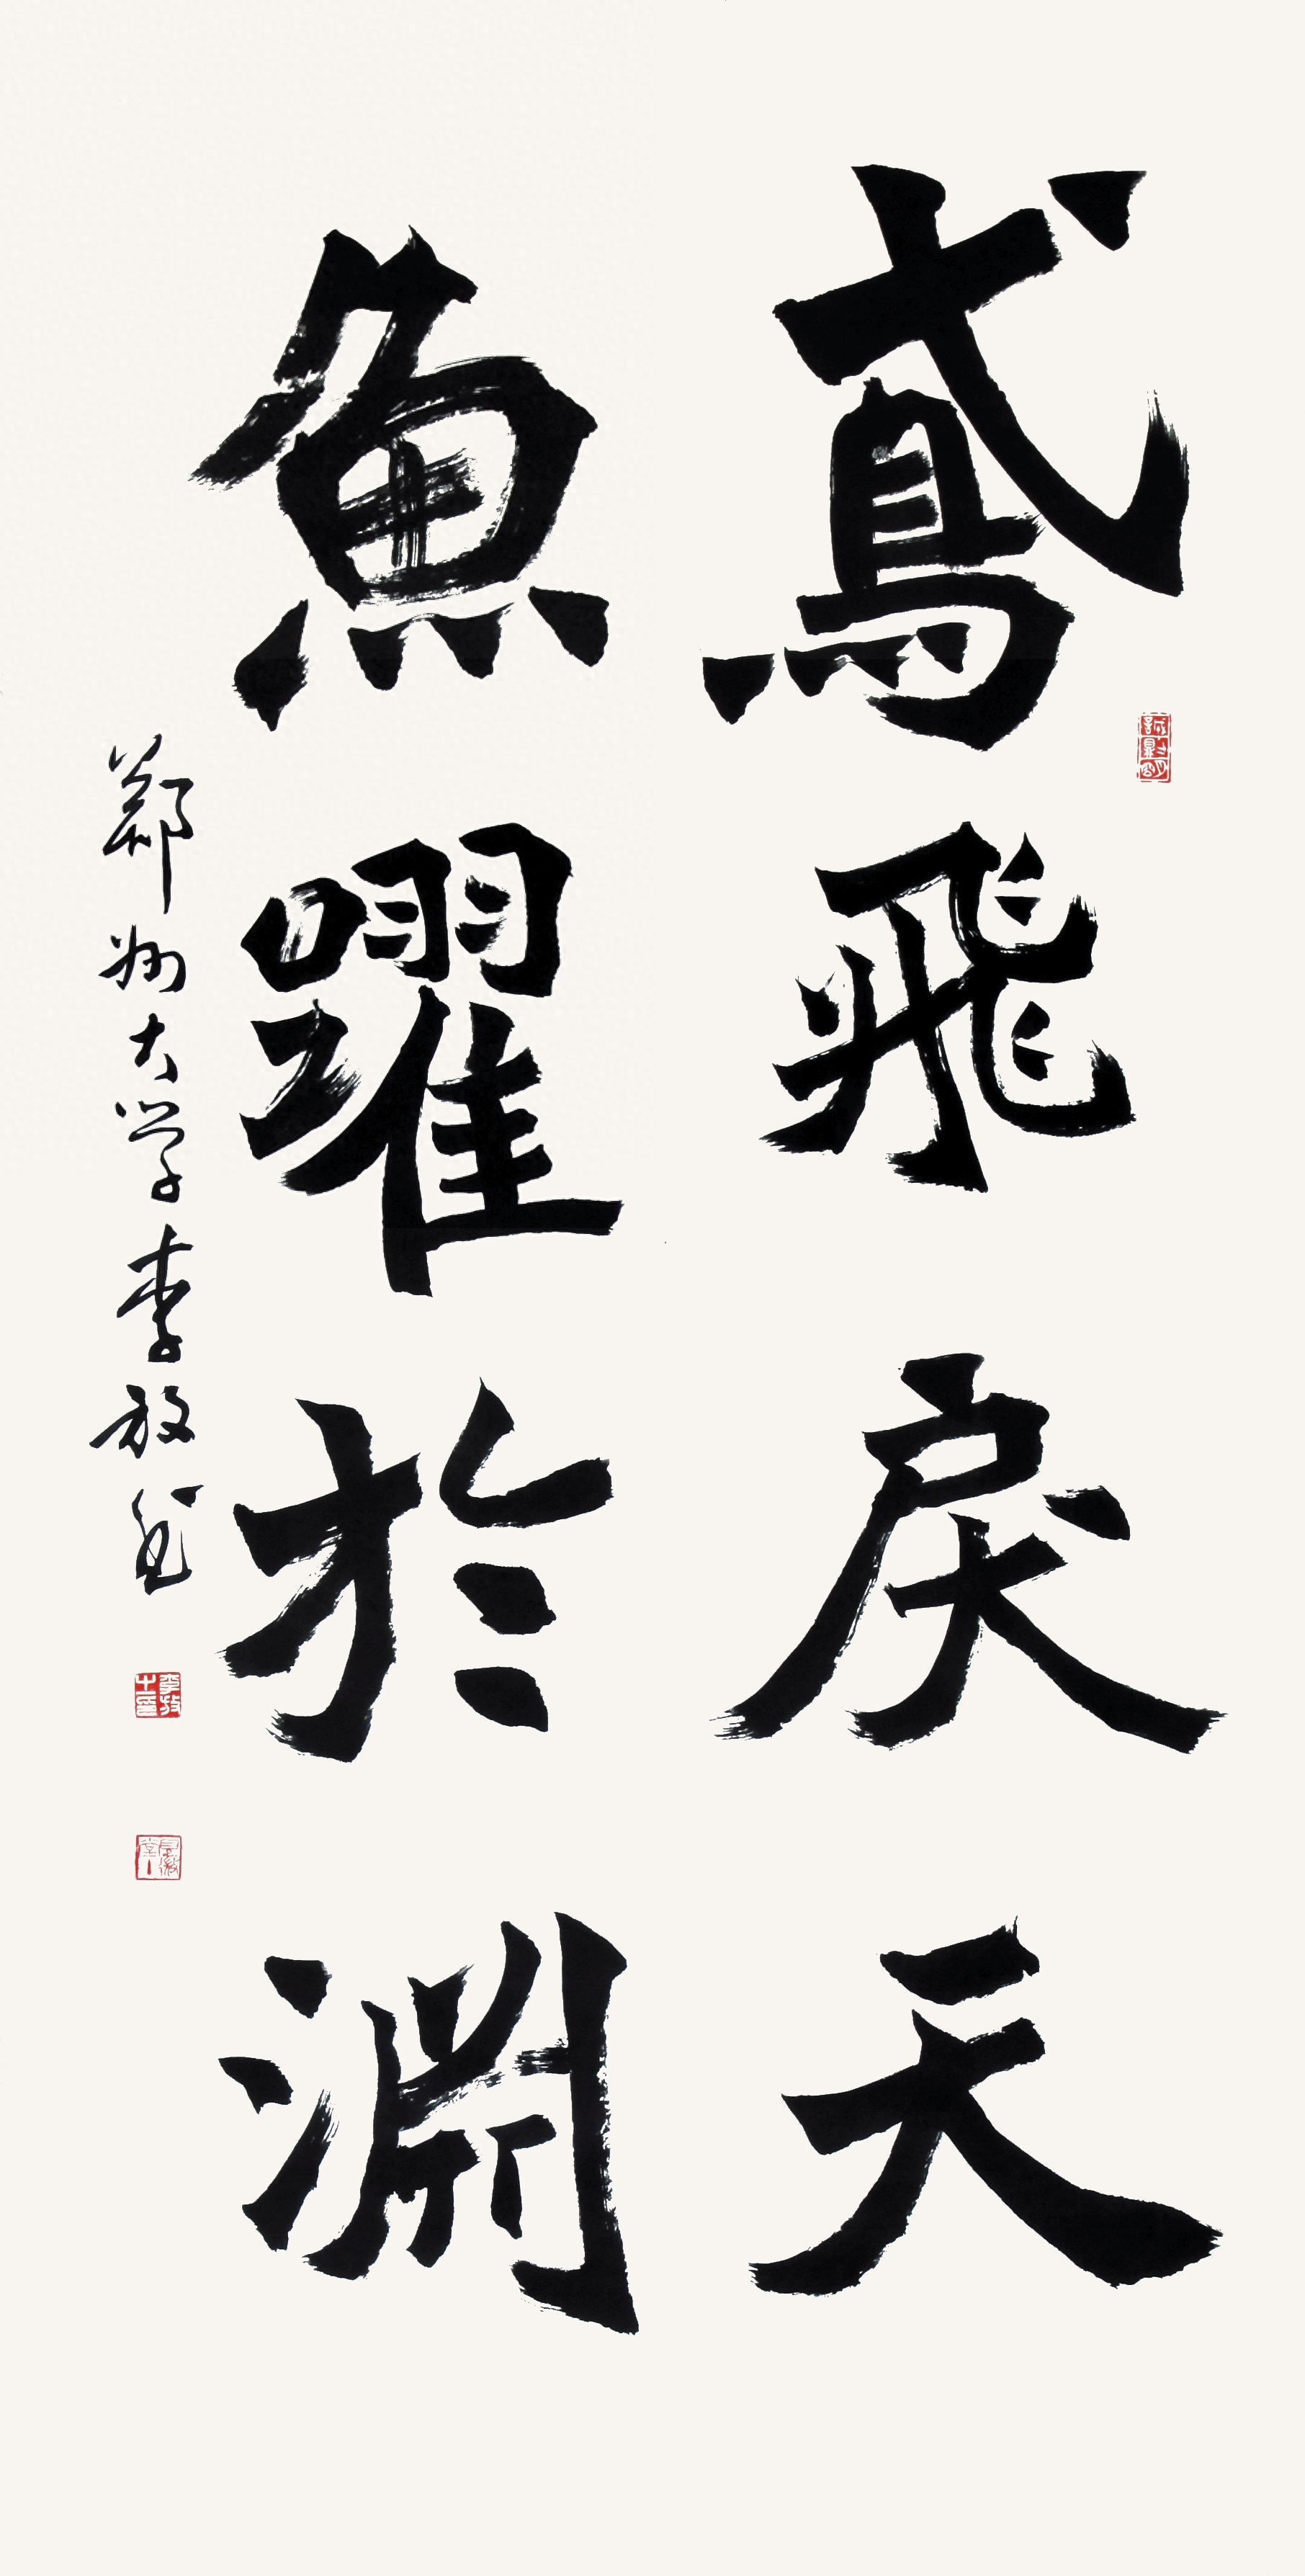 鳶飛戾天
魚躍於淵
鄭州大学李放